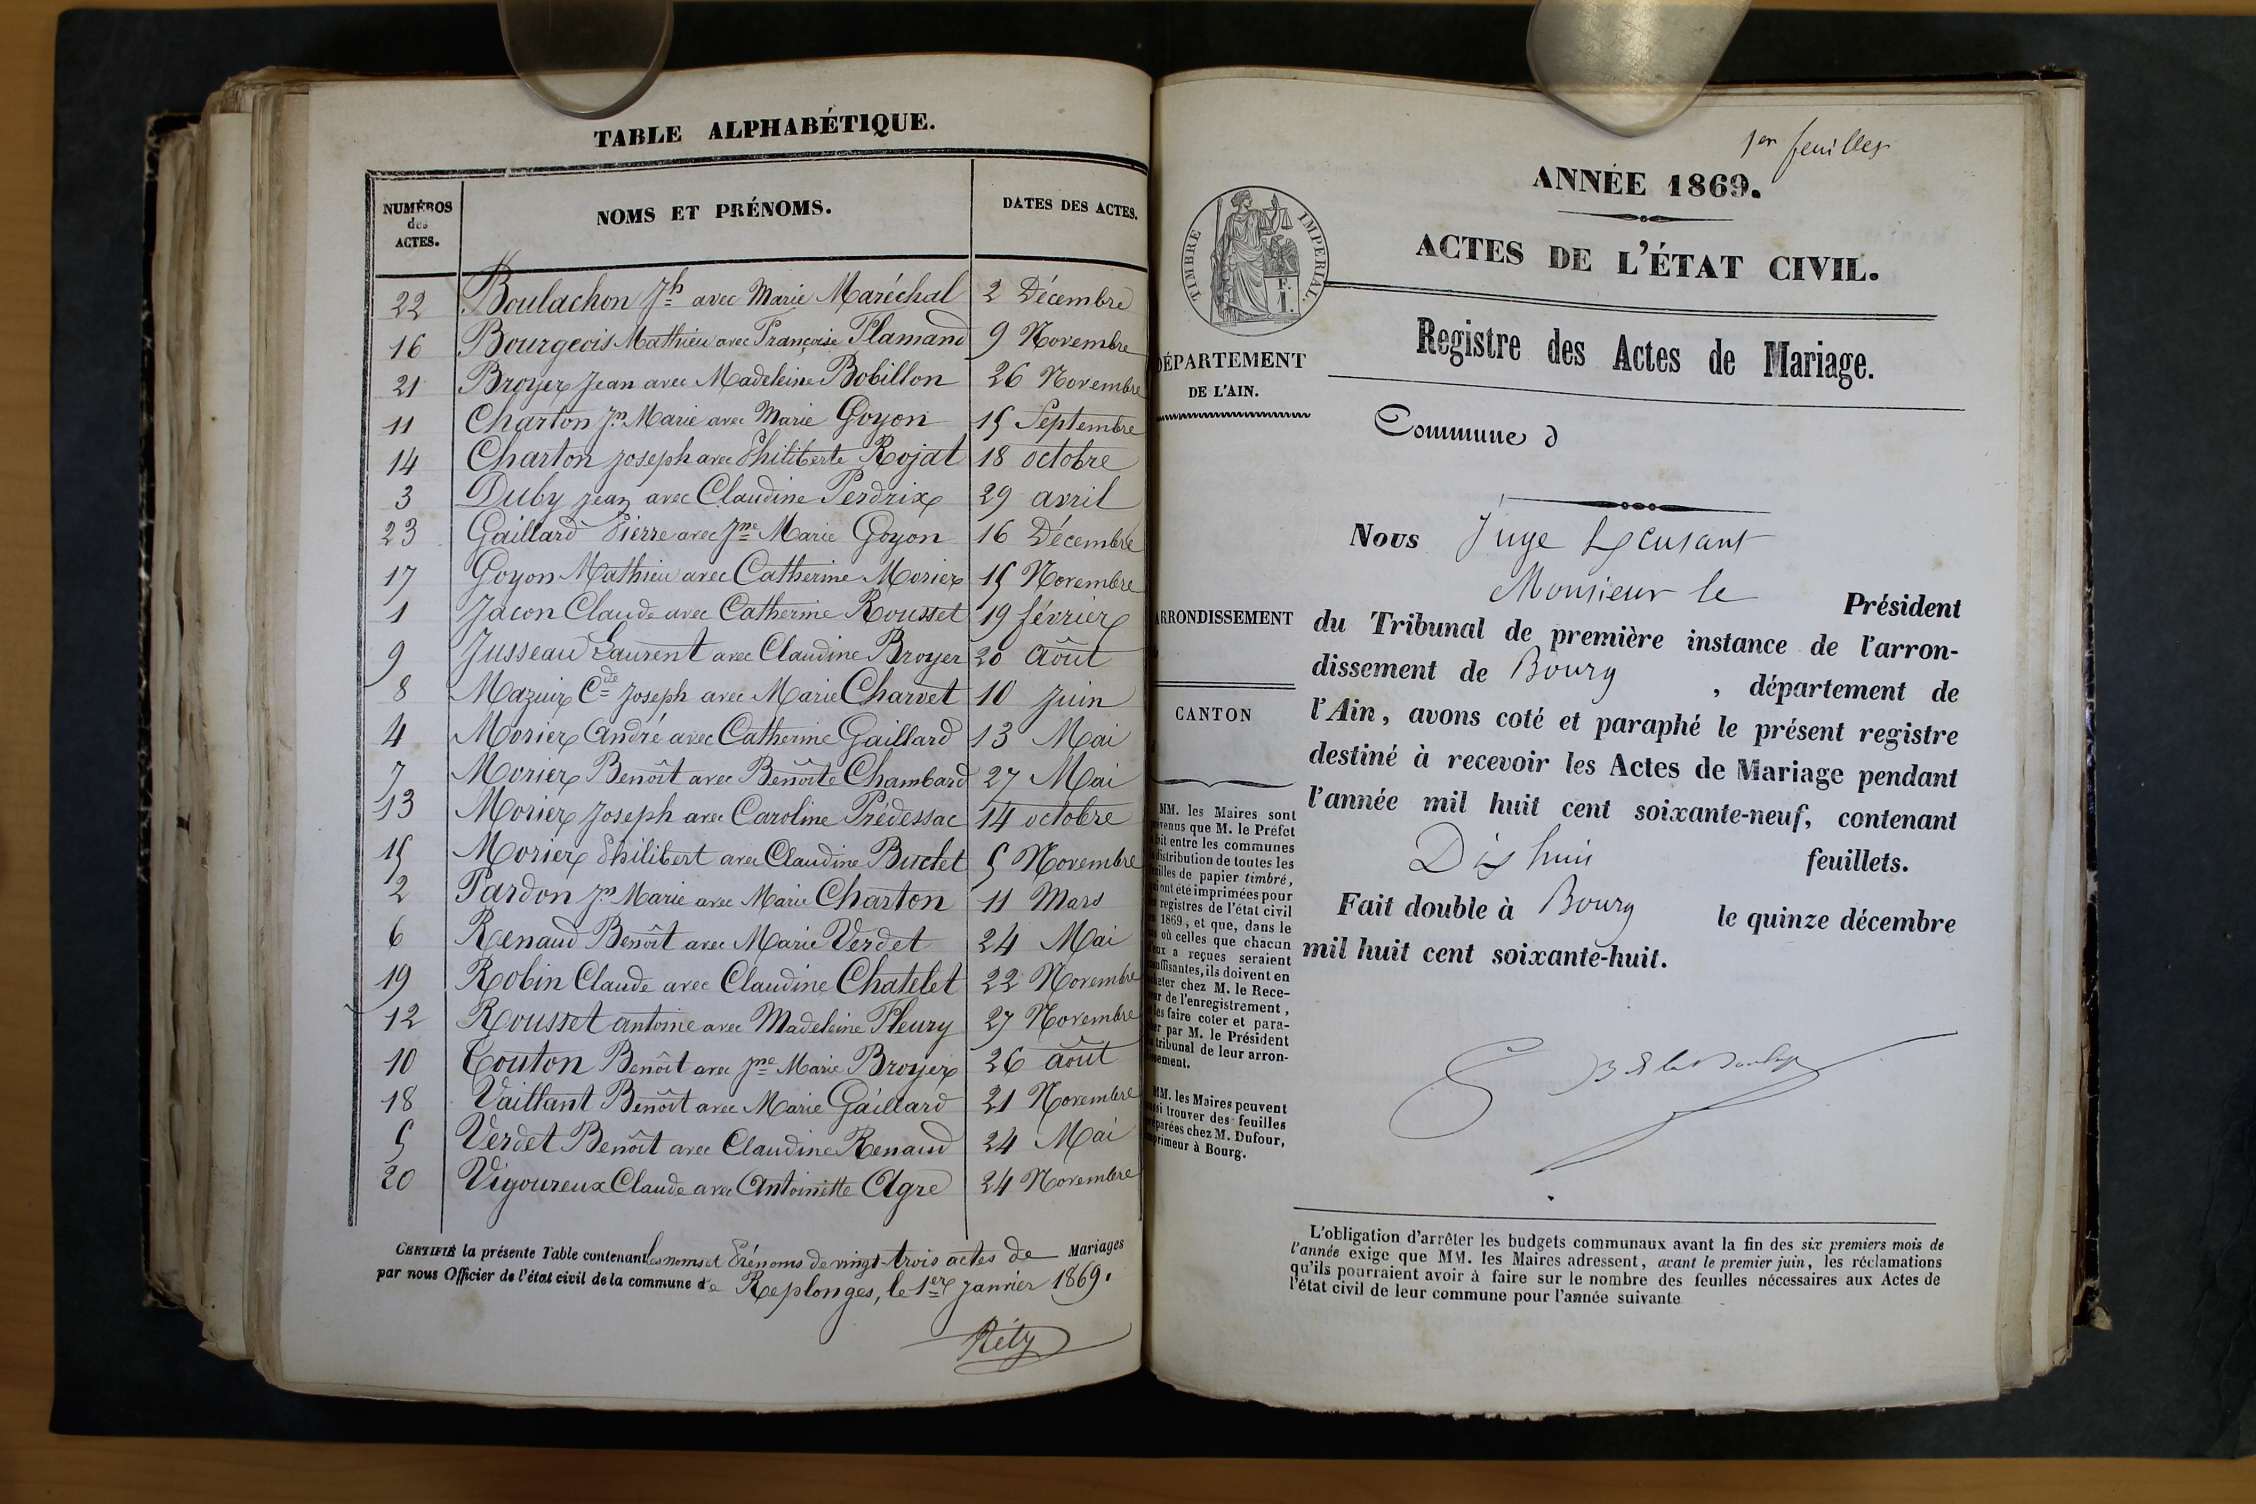 TABLE ALPHABÉTIQUE.
NUMÉROS des ACTES.
NOMS ET PRÉNOMS.
DATES DES ACTES.
22 Boulachon Jh avec Marie Maréchal 2 Décembre
16 Bourgeois Mathieu avec Françoise Flamand 9 Novembre
21 Broyer Jean avec Madeleine Bobillon 26 Novembre
11 Charton Jn Marie avec Marie Goyon 15 Septembre
14 Charton Joseph avec Philiberte Rojat 18 octobre
3 Duby Jean avec Claudine Perdrix 29 avril
23 Gaillard Pierre avec Jne Marie Goyon 16 Décembre
17 Goyon Mathieu avec Catherine Morier 15 Novembre
1 Jacon Claude avec Catherine Rousset 19 février
9 Jusseau Laurent avec Claudine Broyer 20 Août
8 Mazuir Cde Joseph avec Marie Charvet 10 Juin
4 Morier André avec Catherine Gaillard 13 Mai
7 Morier Benoît avec Benoîte Chambard 27 Mai
13 Morier Joseph avec Caroline Prédessac 14 octobre
15 Morier Philibert avec Claudine Buchet 5 Novembre
2 Pardon Jn Marie avec Marie Charton 11 Mars
6 Renaud Benoît avec Marie Verdet 24 Mai
19 Robin Claude avec Claudine Chatelet 22 Novembre
12 Rousset antoine avec Madeleine Fleury 27 Novembre
10 Touton Benoît avec Jne Marie Broyer 26 août
18 Vaillant Benoît avec Marie Gaillard 21 Novembre
5 Verdet Benoît avec Claudine Renaud 24 Mai
20 Vigoureux Claude avec Antoinette Agre 24 Novembre
CERTIFIÉ la présente Table contenant les noms et Prénoms de vingt-trois actes de Mariages
par nous Officier de l'état civil de la commune de Replonges, le 1er Janvier 1869.
Réty
1er feuillet
ANNÉE 1869.
TIMBRE IMPERIAL.
ACTES DE L'ÉTAT CIVIL.
Registre des Actes de Mariage.
DÉPARTEMENT
DE L'AIN.
Commune d
ARRONDISSEMENT
CANTON
MM. les Maires sont
prévenus que M. le Préfet
fait entre les communes
la distribution de toutes les
feuilles de papier timbré,
qui ont été imprimées pour
les registres de l'état civil
de 1869, et que, dans le
cas où celles que chacun
d'eux a reçues seraient
insuffisantes, ils doivent en
acheter chez M. le Rece-
veur de l'enregistrement,
et les faire coter et para-
pher par M. le Président
du tribunal de leur arron-
dissement.
MM. les Maires peuvent
aussi trouver des feuilles
préparées chez M. Dufour,
imprimeur à Bourg.
Nous Juge
Monsieur le Président
du Tribunal de première instance de l'arron-
dissement de Bourg, département de
l'Ain, avons coté et paraphé le présent registre
destiné à recevoir les Actes de Mariage pendant
l'année mil huit cent soixante-neuf, contenant
Dix huit feuillets.
Fait double à Bourg le quinze décembre
mil huit cent soixante-huit.
L'obligation d'arrêter les budgets communaux avant la fin des six premiers mois de
l'année exige que MM. les Maires adressent, avant le premier juin, les réclamations
qu'ils pourraient avoir à faire sur le nombre des feuilles nécessaires aux Actes de
l'état civil de leur commune pour l'année suivante